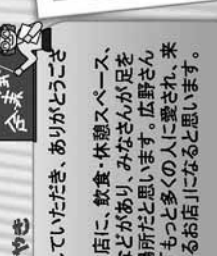 やき
していただき、ありがとうござ
店に、飲食・休憩スペース、
などがあり、みなさんが足を
場所だと思います。広野さん
「もっと多くの人に愛され、来
るお店」になると思います。